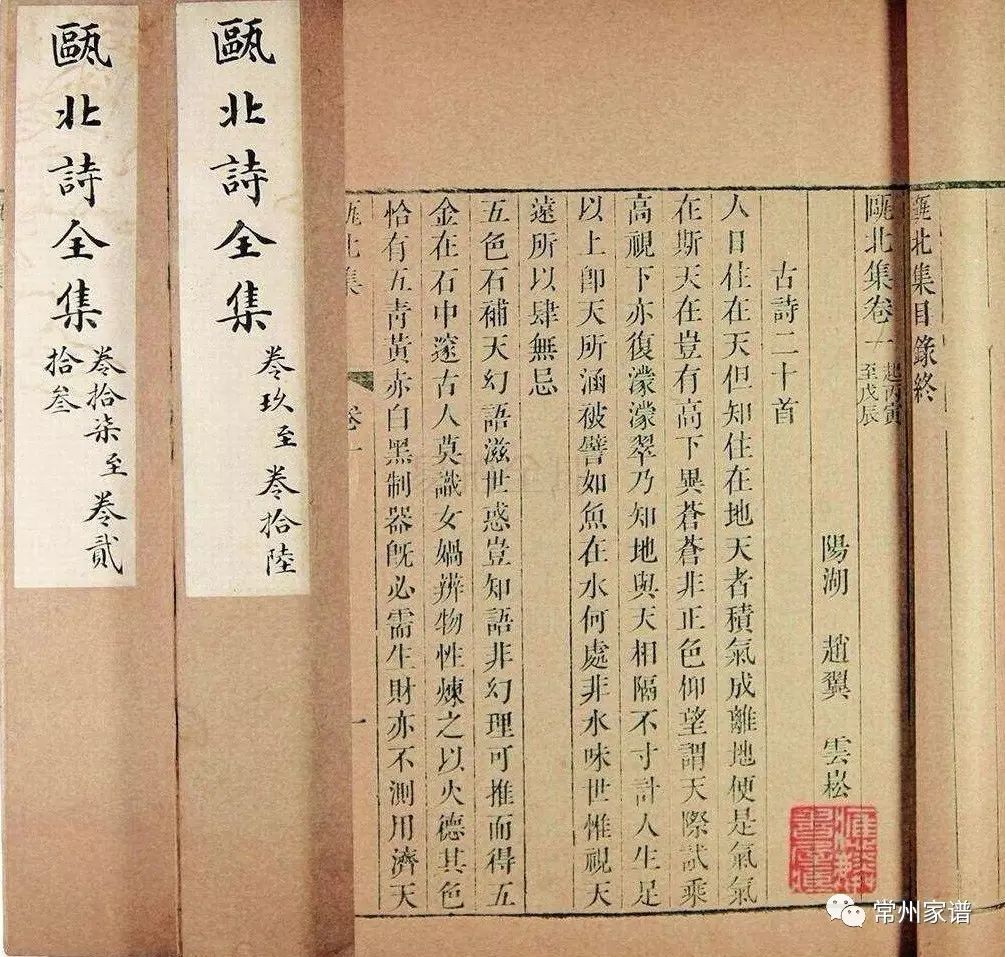 甌北集目錄終
甌北集卷一 起丙寅至戊辰
陽湖 趙翼 雲崧
古詩二十首
人日住在天但知住在地天者積氣成離地便是氣氣
在斯天在豈有高下異蒼蒼非正色仰望謂天際試乘
高視下亦復濛濛翠乃知地與天相隔不寸計人生足
以上卽天所涵被譬如魚在水何處非水味世惟視天
遠所以肆無忌
五色石補天幻語滋世惑豈知語非幻理可推而得五
金在石中邃古人莫識女媧辨物性煉之以火德其色
恰有五青黃赤白黑制器旣必需生財亦不測用濟天
甌北集
卷一
一
甌北詩全集
卷玖至卷拾陸
甌北詩全集
卷拾柒至卷貳
拾叁
常州家谱